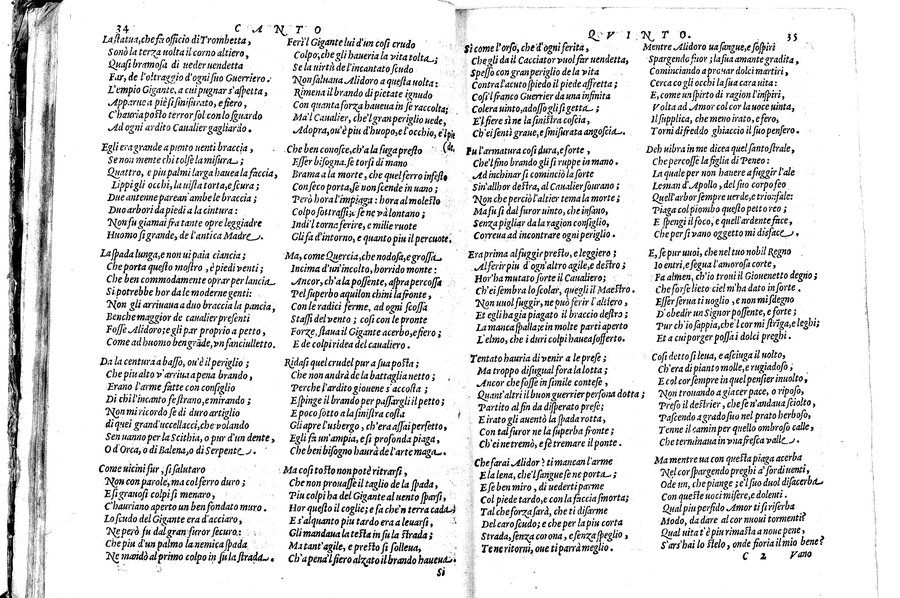 34 CANTO
La statua, che fa officio di Trombetta,
Sonò la terza uolta il corno altiero,
Quasi bramosa di ueder uendetta
Far, de l'oltraggio d'ogni suo Guerriero.
L'empio Gigante, a cui pugnar s'aspetta,
Apparue a piè si smisurato, e fiero,
C'hauria posto terror sol con lo sguardo
Ad ogni ardito Caualier gagliardo.
Egli era grande a punto uenti braccia,
Se non mente chi tolse la misura;
Quattro, e piu palmi larga hauea la faccia,
Lippi gli occhi, la uista torta, e scura;
Due antenne parean' ambe le braccia;
Duo arbori da piedi a la cintura:
Non fu giamai fra tante opre leggiadre
Huomo si grande, de l'antica Madre.
La spada lunga, e non ui paia ciancia;
Che porta questo mostro, è piedi uenti;
Che ben commodamente oprar per lancia
Si potrebbe hor da le moderne genti:
Non gli arriuaua a duo braccia la pancia,
Benche maggior de caualier presenti
Fosse Alidoro; e gli par proprio a petto,
Come ad huomo ben grãde, un fanciulletto.
Da la centura a basso, ou'è il periglio;
Che piu alto v'arriua a pena brando,
Erano l'arme fatte con consiglio
Di chi l'incanto fe strano, e mirando;
Non mi ricordo se di duro artiglio
di quei grand'uccellacci, che volando
Sen uanno per la Scithia, o pur d'un dente,
O d'Orca, o di Balena, o di Serpente.
Come uicini fur, si salutaro
Non con parole, ma col ferro duro;
E si grauosi colpi si menaro,
C'hauriano aperto un ben fondato muro.
Lo scudo del Gigante era d'acciaro,
Ne però fu dal gran furor securo:
Che piu d'un palmo la nemica spada
Ne mandò al primo colpo in su la strada.
Ferì l Gigante lui d'un cosi crudo
Colpo, che gli haueria la vita tolta;
Se la uirtù de l'incantato scudo
Non saluaua Alidoro a questa uolta:
Rimena il brando di pietate ignudo
Con quanta forza haueua in se raccolta;
Ma'l Caualier, che'l gran periglio uede,
Adopra, ou'è piu d'huopo, e l'occhio, e'l piè
(de.
Che ben conosce, ch'a la fuga presto
Esser bisogna. se torsi di mano
Brama a la morte, che quel ferro infesto
Con seco porta, se non scende in uano;
Però hora l'impiaga: hora al molesto
Colpo sottrassi. se ne và lontano;
Indi l torna ferire, e mille ruote
Gli fa d'intorno, e quanto piu il percuote.
Ma, come Quercia, che nodosa, e grossa
Incima d'un'incolto, horrido monte:
Ancor, ch'a la possente, aspra percossa
Pel superbo aquilon chini la fronte,
Con le radici ferme, ad ogni scossa
Stassi del vento; cosi con le pronte
Forze, staua il Gigante acerbo, e fiero;
E de colpi ridea del caualiero.
Ridasi quel crudel pur a sua posta;
Che non andrà de la battaglia netto;
Perche l'ardito giouene s'accosta;
E spinge il brando per passargli il petto;
E poco sotto a la sinistra costa
Gli apre l'usbergo, ch'era assai perfetto,
Egli fa un'ampia, e si profonda piaga,
Che ben bisogno haurà de l'arte maga.
Ma cosi tosto non potè ritrarsi,
Che non prouasse il taglio de la spada,
Piu colpi ha del Gigante al uento sparsi,
Hor questo il coglie; e fa che'n terra cada
E s'alquanto piu tardo era a leuarsi,
Gli mandaua la testa in su la strada;
Ma tant'agile, e presto si solleua,
Ch'a pena'l fiero alzato il brando haueua.
Si
QVINTO. 35
Si come l'orso, che d'ogni ferita,
Che gli da il Cacciator vuol far uendetta,
Spesso con gran periglio de la vita
Contra l'acuto spiedo il piede affretta;
Cosi l franco Guerrier da una infinita
Colera uinto, adosso gli si getta;
E l fiere sì ne la sinistra coscia,
Ch'ei sentì graue, e smisurata angoscia.
Fu l'armatura cosi dura, e forte,
Che'l fino brando gli si ruppe in mano.
Ad inchinar si cominciò la sorte
Sin'allhor destra, al Caualier sourano;
Non che perciò l'altier tema la morte;
Ma fu si dal furor uinto, che insano,
Senza pigliar da la ragion consiglio,
Correua ad incontrare ogni periglio.
Era prima al fuggir presto, e leggiero;
Al ferir piu d'ogn'altro agile, e destro;
Hor'ha mutato sorte il Caualiero;
Ch'ei sembra lo scolar, quegli il Maestro.
Non uuol fuggir, ne può ferir l'altiero,
Et egli ha gia piagato il braccio destro;
La manca spalla; e in molte parti aperto
L'elmo, che i duri colpi hauea sofferto.
Tentato hauria di venir a le prese;
Ma troppo disugual fora la lotta;
Ancor che fosse in simile contese,
Quant'altri il buon guerrier persona dotta;
Partito al fin da disperato prese;
E irato gli auentò la spada rotta,
Con tal furor ne la superba fronte;
Ch'ei ne tremò, e fè tremare il ponte.
Che farai Alidor? ti mancan l'arme
E la lena, che'l sangue se ne porta;
E se ben miro, di uederti parme
Col piede tardo, e con la faccia smorta;
Tal che forza farà, che ti disarme
Del caro scudo; e che per la piu corta
Strada, senza corona, e senza spoglia,
Te ne ritorni, oue ti parrà meglio.
Mentre Alidoro ua sangue, e sospiri
Spargendo fuor; la sua amante gradita,
Cominciando a prouar dolci martiri,
Cerca co gli occhi la sua cara uita:
E, come un spirto di ragion l'inspiri,
Volta ad Amor col cor la uoce uinta,
Il supplica, che meno irato, e fero,
Torni di freddo ghiaccio il suo pensero.
Deh uibra in me dicea quel santo strale,
Che percosse la figlia di Peneo:
La quale per non hauere a fuggir l'ale
Leman d'Apollo, del suo corpo feo
Quell'arbor sempre uerde, e trionfale:
Piaga col piombo questo petto reo;
E spengi il foco, e quell'ardente face,
Che per si vano oggetto mi disface.
E, se pur uuoi, che nel tuo nobil Regno
Io entri, e segua l'amorosa corte,
Fa almen, ch'io troui il Giouenetto degno;
Che forse lieto ciel m'ha dato in sorte.
Esser serua ti uoglio, e non mi sdegno
D'obedir un Signor possente, e forte;
Pur ch'io sappia, che'l cor mi strīga, e leghi;
Et a cui porger possa i dolci preghi.
Cosi detto si leua, e asciuga il uolto,
Ch'era di pianto molle, e rugiadoso,
E col cor sempre in quel pensier inuolto,
Non trouando a giacer pace, o riposo,
Preso il destrier, che se n'andaua sciolto,
Pascendo a grado suo nel prato herboso,
Tenne il camin per quello ombroso calle,
Che terminaua in una fresca valle.
Ma mentre ua con questa piaga acerba
Nel cor spargendo preghi a' sordi uenti,
Ode un, che piange; e'l suo duol disacerba
Con queste uoci misere, e dolenti.
Qual piu perfido Amor ti si riserba
Modo, da dare al cor nuoui tormenti?
Qual uita t'è piu rimasta a noue pene,
S'ars'hai lo stelo, onde fioria il mio bene?
C 2 Vano